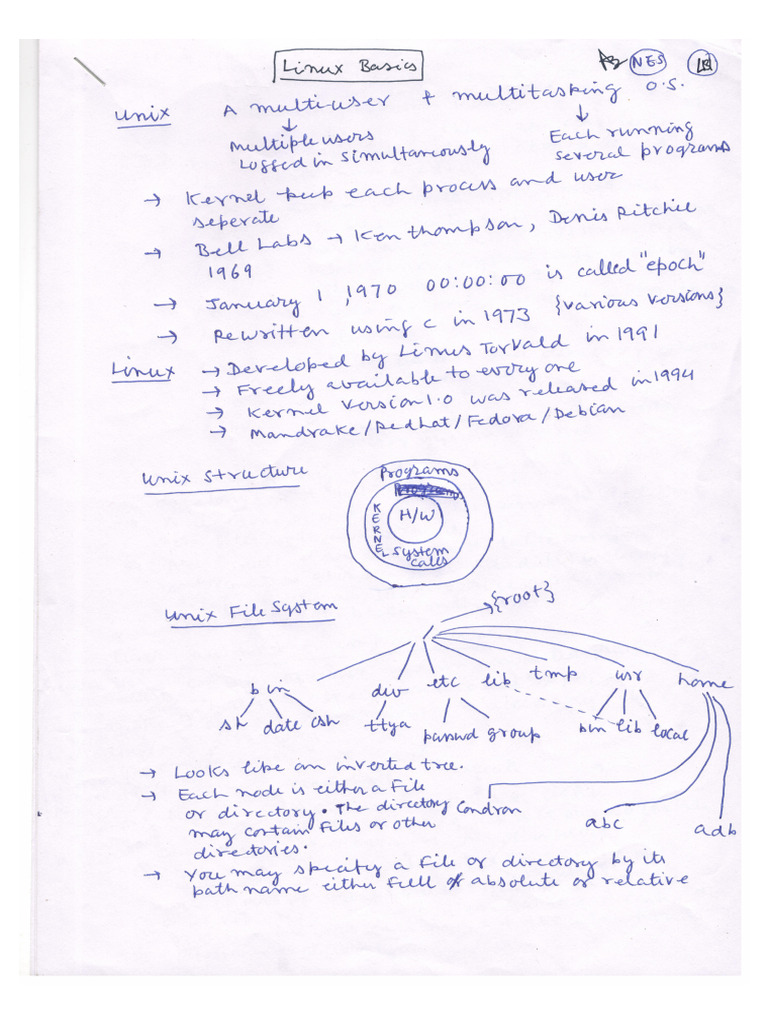 Linux Basics
NES
Unix A multiuser + multitasking O.S.
Multiple users
Logged in simultaneously
Each running
several programs
→ Kernel keep each process and user
seperate
→ Bell Labs → Ken thompson, Denis Ritchie
1969
→ January 1, 1970 00:00:00 is called "epoch"
→ Rewritten using C in 1973 {various versions}
Linux → Developed by Linus Torvald in 1991
→ Freely available to every one
→ Kernel Version 1.0 was released in 1994
→ Mandrake/Redhat/Fedora/Debian
Unix Structure
Programs
KERNEL
H/W
System
calls
Unix File System
{root}
/
bin div etc lib tmp usr home
sh date csh ttya passwd group bin lib local
→ Looks like an inverted tree.
→ Each node is either a File
or directory. The directory
may contain files or other
directories.
Condron
abc
adb
→ You may specify a file or directory by its
path name either full or absolute or relative